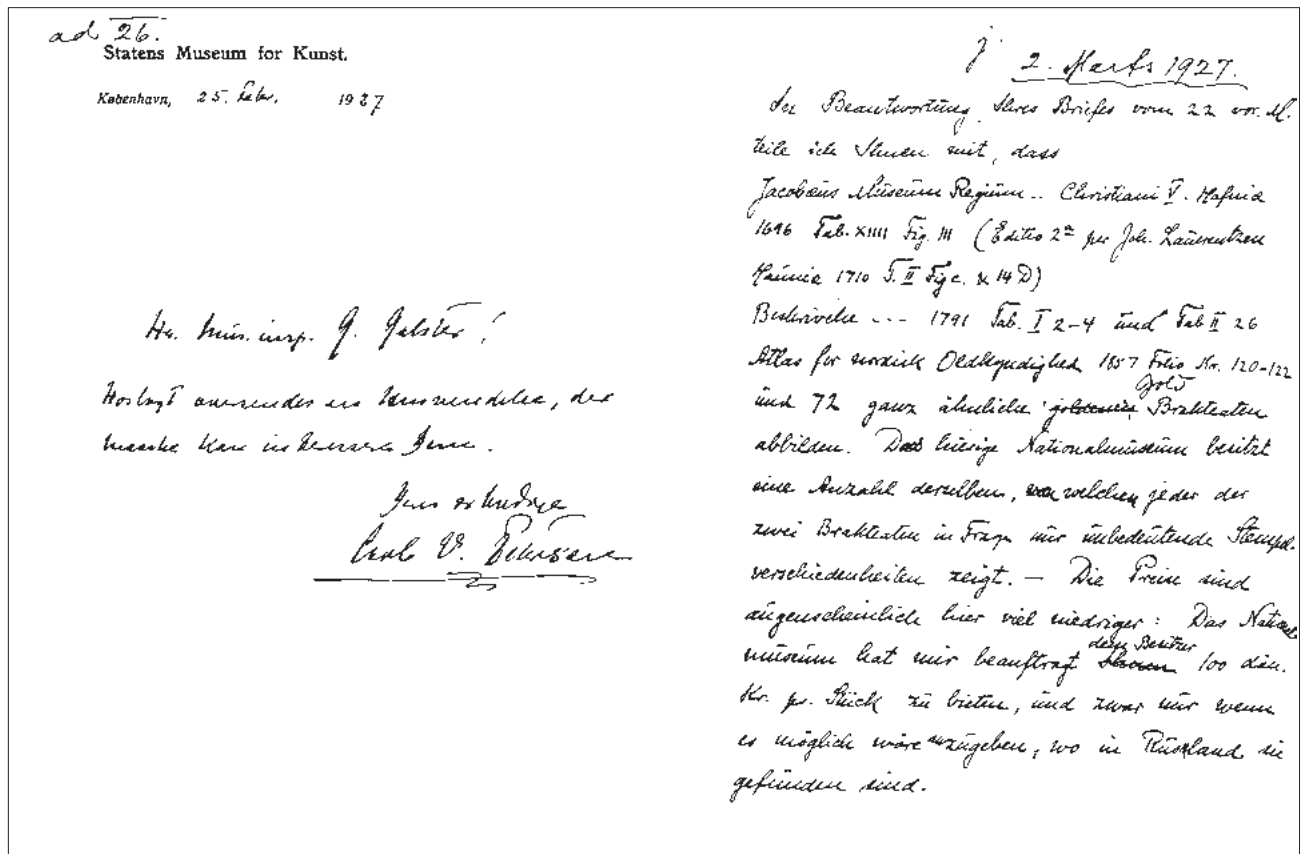 ad 26.
Statens Museum for Kunst.
København, 25. Febr. 1927
Hr. Mus. insp. G. Galster!
Hoslagt en, der
maaske kan interessere Dem.
Deres ærbødige
Carl V. Petersen
2. Marts 1927.
In Beantwortung Ihres Briefes vom 22 vor. M.
teile ich Ihnen mit, dass
Jacobæus Museum Regium .. Christiani V. Hafniæ
1696 Tab. XIIII Fig. III (Editio 2ª per Joh. Laurentzen
Hauniæ 1710 T. II Fig c. & 14 D)
Beskrivelse --- 1791 Tab. I 2-4 und Tab II 26
Atlas for nordisk Oldkyndighed 1857 Folio Nr. 120-122
und 72 ganz ähnliche goldene Gold Brakteaten
abbilden. Das hiesige Nationalmuseum besitzt
eine Anzahl derselben, von welchen jeder der
zwei Brakteaten in Frage nur unbedeutende Stempel-
verschiedenheiten zeigt. — Die Preise sind
augenscheinlich hier viel niedriger: Das National
museum hat mir beauftragt Ihnen dem Besitzer 100 dän.
Kr. pr. Stück zu bieten, und zwar nur wenn
es möglich wäre anzugeben, wo in Russland sie
gefunden sind.